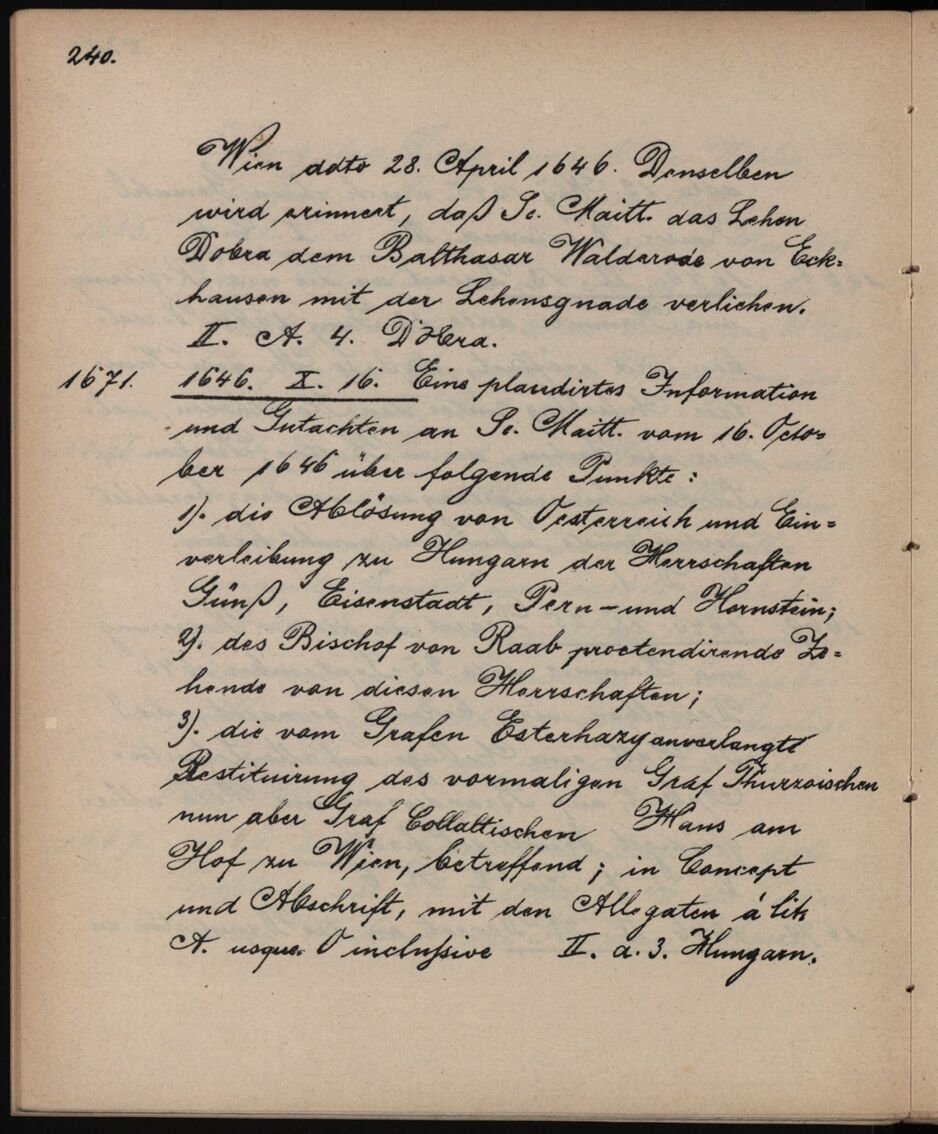 240.
Wien ddto 28. April 1646. Denselben
wird erinnert, daß Se. Maitt. das Lehen
Dobra dem Balthasar Walderode von Eck=
hausen mit der Lehensgnade verliehen.
II. A. 4. Dobra.
1671. 1646. X. 16. Eine plaudirtes Information
und Gutachten an Se. Maitt. vom 16. Octo=
ber 1646 über folgende Punkte:
1). die Ablösung von Oesterreich und Ein=
verleibung zu Hungarn der Herrschaften
Günß, Eisenstadt, Pern- und Hornstein;
2). des Bischof von Raab proetendirende Ze=
hende von diesen Herrschaften;
3). die vom Grafen Esterhazy anverlangte
Restituirung des vormaligen Graf Thurzoischen
nun aber Graf Collaltischen Haus am
Hof zu Wien, betreffend; in Concept
und Abschrift, mit den Allegaten á lit.
A. usque O inclußive II. a. 3. Hungarn.